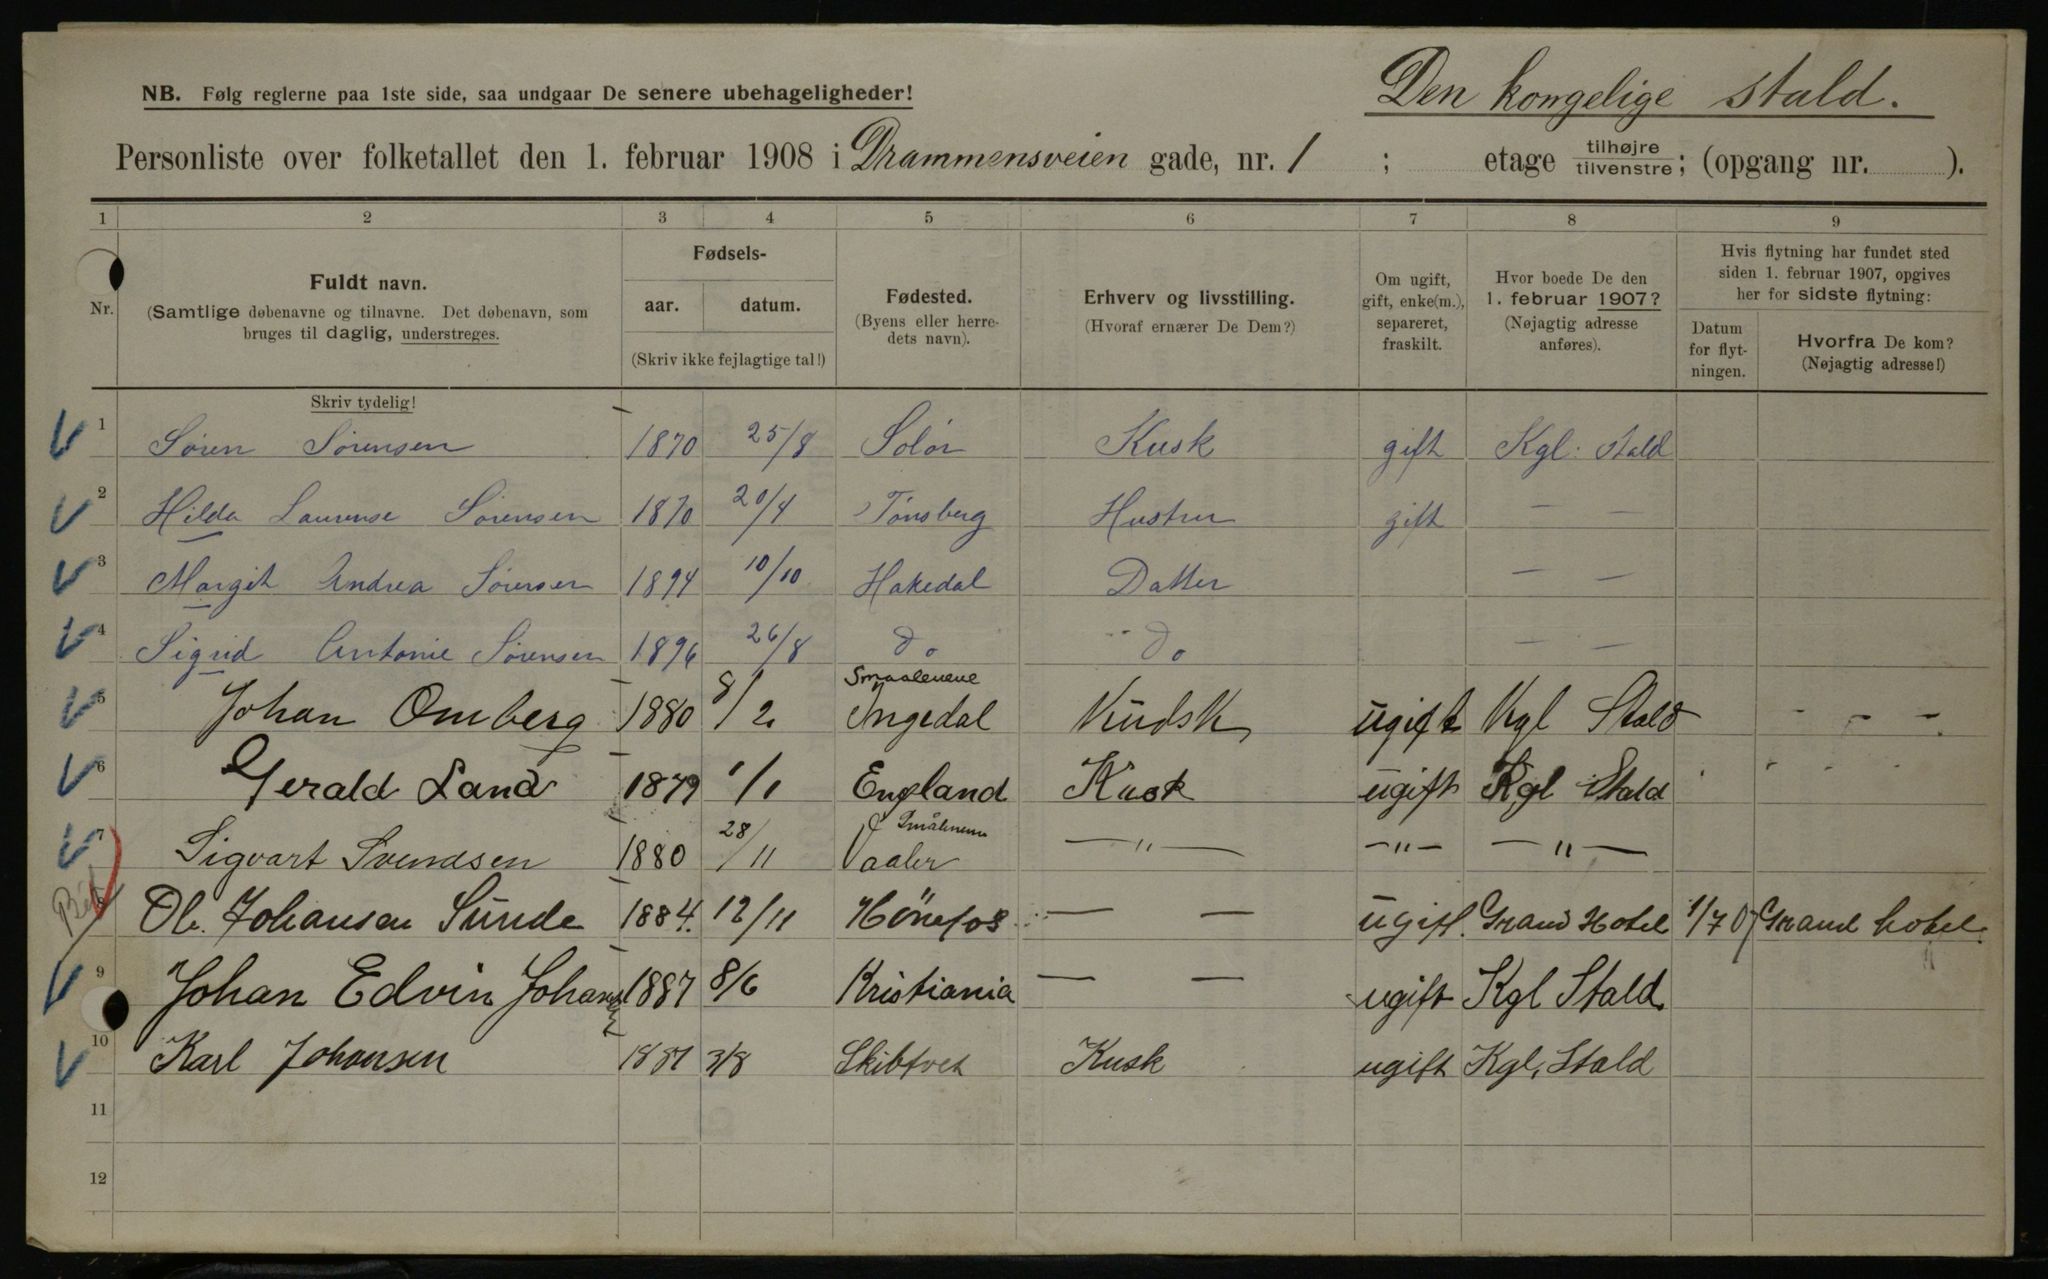 Den kongelige Stald.
NB. Følg reglerne paa 1ste side, saa undgaar De senere ubehageligheder!
Personliste over folketallet den 1. februar 1908 i Drammensveien gade, nr. 1 ; etage tilhøjre/tilvenstre; (opgang nr. ).
1 2 3 4 5 6 7 8 9
Nr.
Fuldt navn.
(Samtlige døbenavne og tilnavne. Det døbenavn, som
bruges til daglig, understreges.
Fødsels-
aar. datum.
(Skriv ikke fejlagtige tal!)
Fødested.
(Byens eller herre-
dets navn).
Erhverv og livsstilling.
(Hvoraf ernærer De Dem?)
Om ugift,
gift, enke(m.),
separeret,
fraskilt.
Hvor boede De den
1. februar 1907?
(Nøjagtig adresse
anføres).
Hvis flytning har fundet sted
siden 1. februar 1907, opgives
her for sidste flytning:
Datum
for flyt-
ningen.
Hvorfra De kom?
(Nøjagtig adresse!)
Skriv tydelig!
1 Søren Sørensen 1870 25/8 Solør Kusk gift Kgl: Stald
2 Hilda Laurense Sørensen 1870 20/4 Tønsberg Hustru gift — —
3 Margit Andrea Sørensen 1894 10/10 Hakedal Datter — —
4 Sigrid Antonie Sørensen 1896 26/8 do do — —
Smaalenene
5 Johan Omberg 1880 8/2 Ingedal Kudsk ugift Kgl Stald - - -
6 Gerald Land 1879 1/1 England Kusk ugift Kgl Stald " " "
Smålenene
7 Sigvart Svendsen 1880 28/11 Vaaler — " — — " — — " —
8 Ole Johansen Sunde 1884. 12/11 Hönefos — — ugift. Grand Hotel 1/7 07 Grand hotel.
9 Johan Edvin Johansen 1887 8/6 Kristiania — — ugift Kgl Stald.
10 Karl Johansen 1887 3/8 Skibtvet Kusk ugift Kgl, Stald
11
12